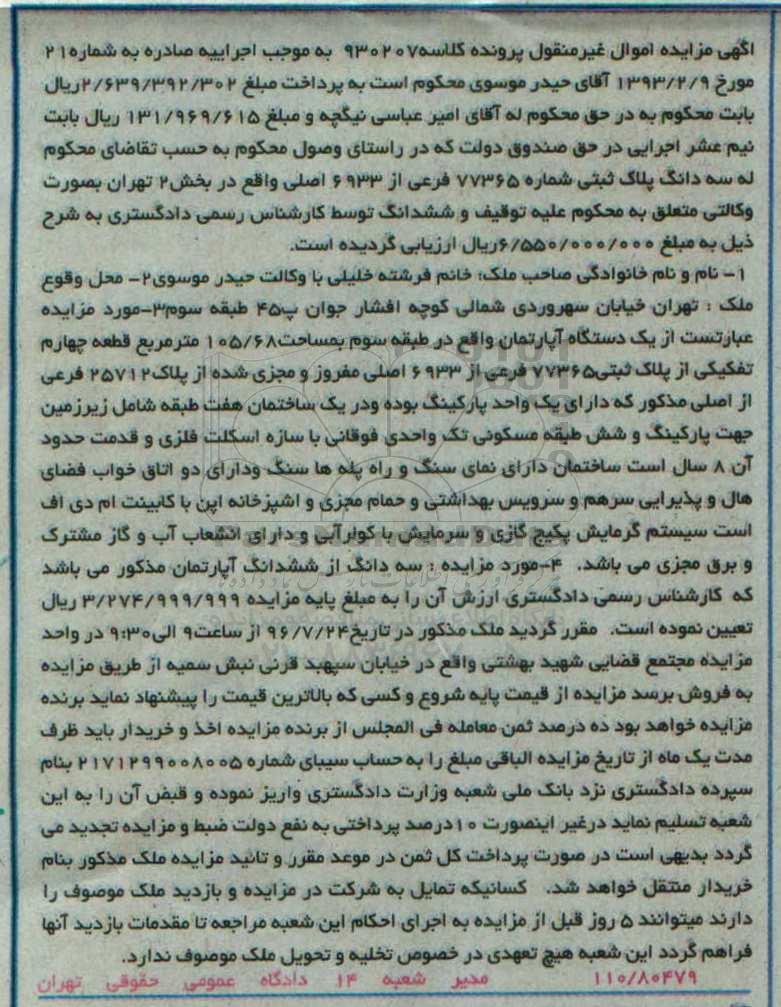 آگهی مزایده اموال غیرمنقول پرونده کلاسه ۹۳۰۲۰۷ به موجب اجراییه صادره به شماره ۲۱
مورخ ۱۳۹۳/۲/۹ آقای حیدر موسوی محکوم است به پرداخت مبلغ ۲/۶۳۹/۳۹۲/۳۰۲ریال
بابت محکوم به در حق محکوم له آقای امیر عباسی نیگجه و مبلغ ۱۳۱/۹۶۹/۶۱۵ ریال بابت
نیم عشر اجرایی در حق صندوق دولت که در راستای وصول محکوم به حسب تقاضای محکوم
له سه دانگ پلاک ثبتی شماره ۷۷۳۶۵ فرعی از ۶۹۳۳ اصلی واقع در بخش۲ تهران بصورت
وکالتی متعلق به محکوم علیه توقیف و ششدانگ توسط کارشناس رسمی دادگستری به شرح
ذیل به مبلغ ۶/۵۵۰/۰۰۰/۰۰۰ریال ارزیابی گردیده است.
۱- نام و نام خانوادگی صاحب ملک: خانم فرشته خلیلی با وکالت حیدر موسوی۲- محل وقوع
ملک : تهران خیابان سهروردی شمالی کوچه افشار جوان پ۴۵ طبقه سوم۳-مورد مزایده
عبارتست از یک دستگاه آپارتمان واقع در طبقه سوم بمساحت۱۰۵/۶۸ مترمربع قطعه چهارم
تفکیکی از پلاک ثبتی۷۷۳۶۵ فرعی از ۶۹۳۳ اصلی مفروز و مجزی شده از پلاک۲۵۷۱۲ فرعی
از اصلی مذکور که دارای یک واحد پارکینگ بوده ودر یک ساختمان هفت طبقه شامل زیرزمین
جهت پارکینگ و شش طبقه مسکونی تک واحدی فوقانی با سازه اسکلت فلزی و قدمت حدود
آن ۸ سال است ساختمان دارای نمای سنگ و راه پله ها سنگ ودارای دو اتاق خواب فضای
هال و پذیرایی سرهم و سرویس بهداشتی و حمام مجزی و اشپزخانه اپن با کابینت ام دی اف
است سیستم گرمایش پکیج گازی و سرمایش با کولرآبی و دارای انشعاب آب و گاز مشترک
و برق مجزی می باشد. ۴-مورد مزایده : سه دانگ از ششدانگ آپارتمان مذکور می باشد
که کارشناس رسمی دادگستری ارزش آن را به مبلغ پایه مزایده ۳/۲۷۴/۹۹۹/۹۹۹ ریال
تعیین نموده است. مقرر گردید ملک مذکور در تاریخ۹۶/۷/۲۴ از ساعت۹ الی۹:۳۰ در واحد
مزایده مجتمع قضایی شهید بهشتی واقع در خیابان سپهبد قرنی نبش سمیه از طریق مزایده
به فروش برسد مزایده از قیمت پایه شروع و کسی که بالاترین قیمت را پیشنهاد نماید برنده
مزایده خواهد بود ده درصد ثمن معامله فی المجلس از برنده مزایده اخذ و خریدار باید ظرف
مدت یک ماه از تاریخ مزایده الباقی مبلغ را به حساب سیبای شماره ۲۱۷۱۲۹۹۰۰۸۰۰۵ بنام
سپرده دادگستری نزد بانک ملی شعبه وزارت دادگستری واریز نموده و قبض آن را به این
شعبه تسلیم نماید درغیر اینصورت ۱۰درصد پرداختی به نفع دولت ضبط و مزایده تجدید می
گردد بدیهی است در صورت پرداخت کل ثمن در موعد مقرر و تائید مزایده ملک مذکور بنام
خریدار منتقل خواهد شد. کسانیکه تمایل به شرکت در مزایده و بازدید ملک موصوف را
دارند میتوانند ۵ روز قبل از مزایده به اجرای احکام این شعبه مراجعه تا مقدمات بازدید آنها
فراهم گردد این شعبه هیچ تعهدی در خصوص تخلیه و تحویل ملک موصوف ندارد.
۱۱۰/۸۰۴۷۹ مدیر شعبه ۱۴ دادگاه عمومی حقوقی تهران